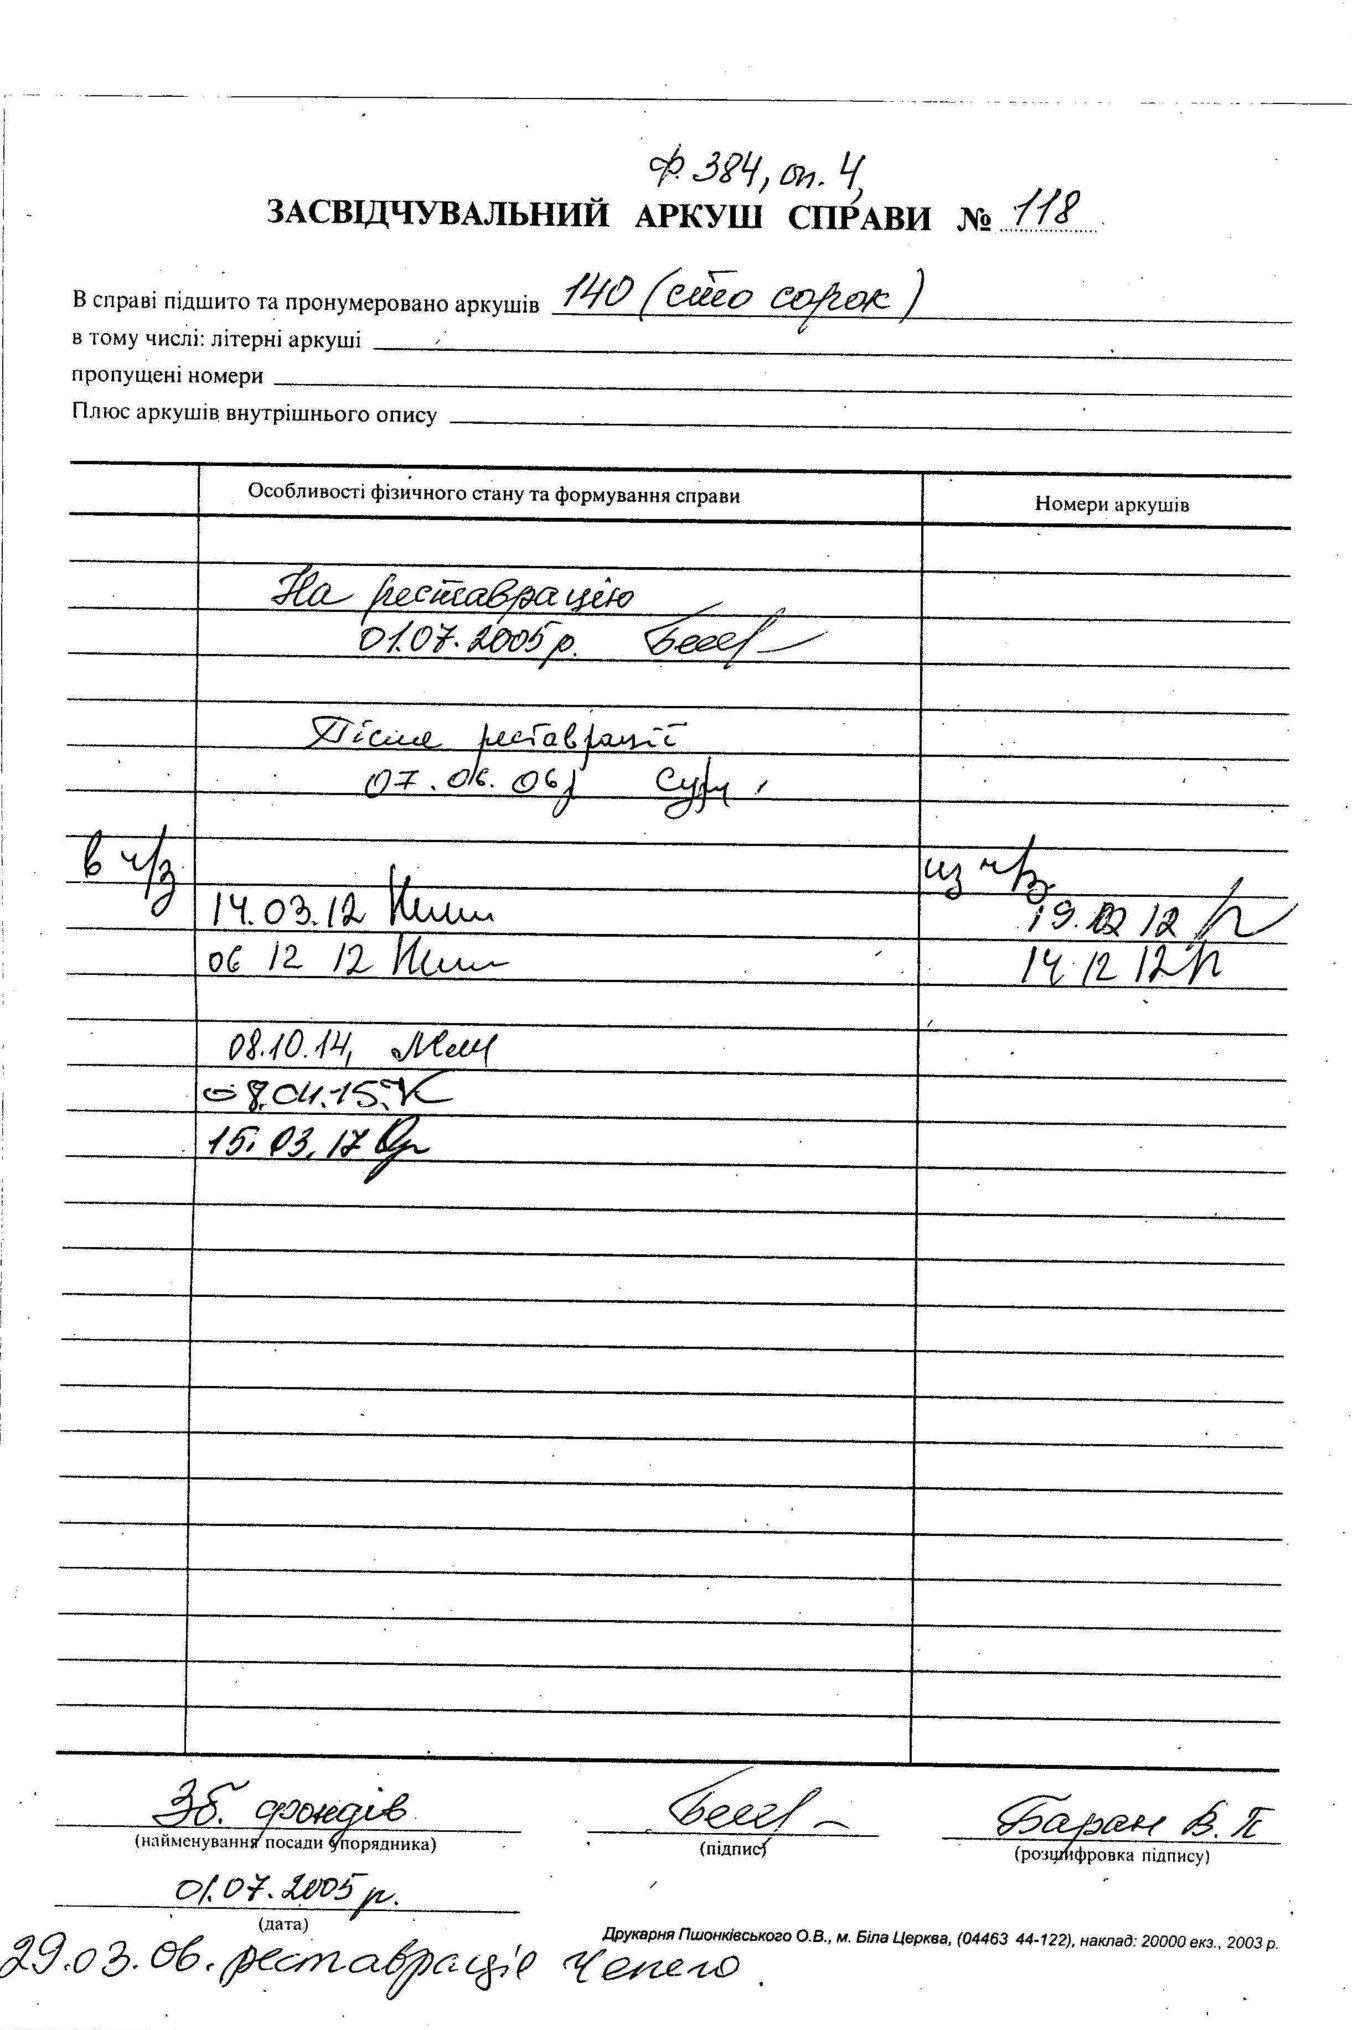 ф. 384, оп. 4,
ЗАСВІДЧУВАЛЬНИЙ АРКУШ СПРАВИ № 118
В справі підшито та пронумеровано аркушів 140 (сто сорок)
в тому числі: літерні аркуші
пропущені номери
Плюс аркушів внутрішнього опису
Особливості фізичного стану та формування справи Номери аркушів
На реставрацію
01.07.2005 р.
Після реставрації
07.06.06р
в ч/з из ч/з
14.03.12 19. 12
06 12 12 14 12 12
08.10.14,
08.04.15.
15.03.17
Зб. фондів Баран В.П
(найменування посади упорядника) (підпис) (розшифровка підпису)
01.07.2005 р.
(дата)
Друкарня Пшонківського О.В., м. Біла Церква, (04463 44-122), наклад: 20000 екз., 2003 р.
29.03.06. реставраціє